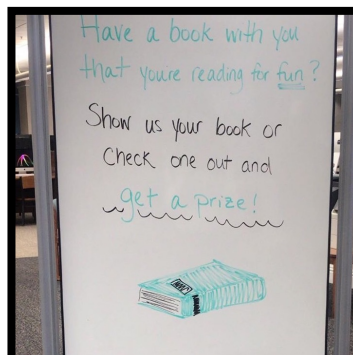 Have a book with you
that youre reading for fun?
Show us your book or
Check one out and
get a prize!